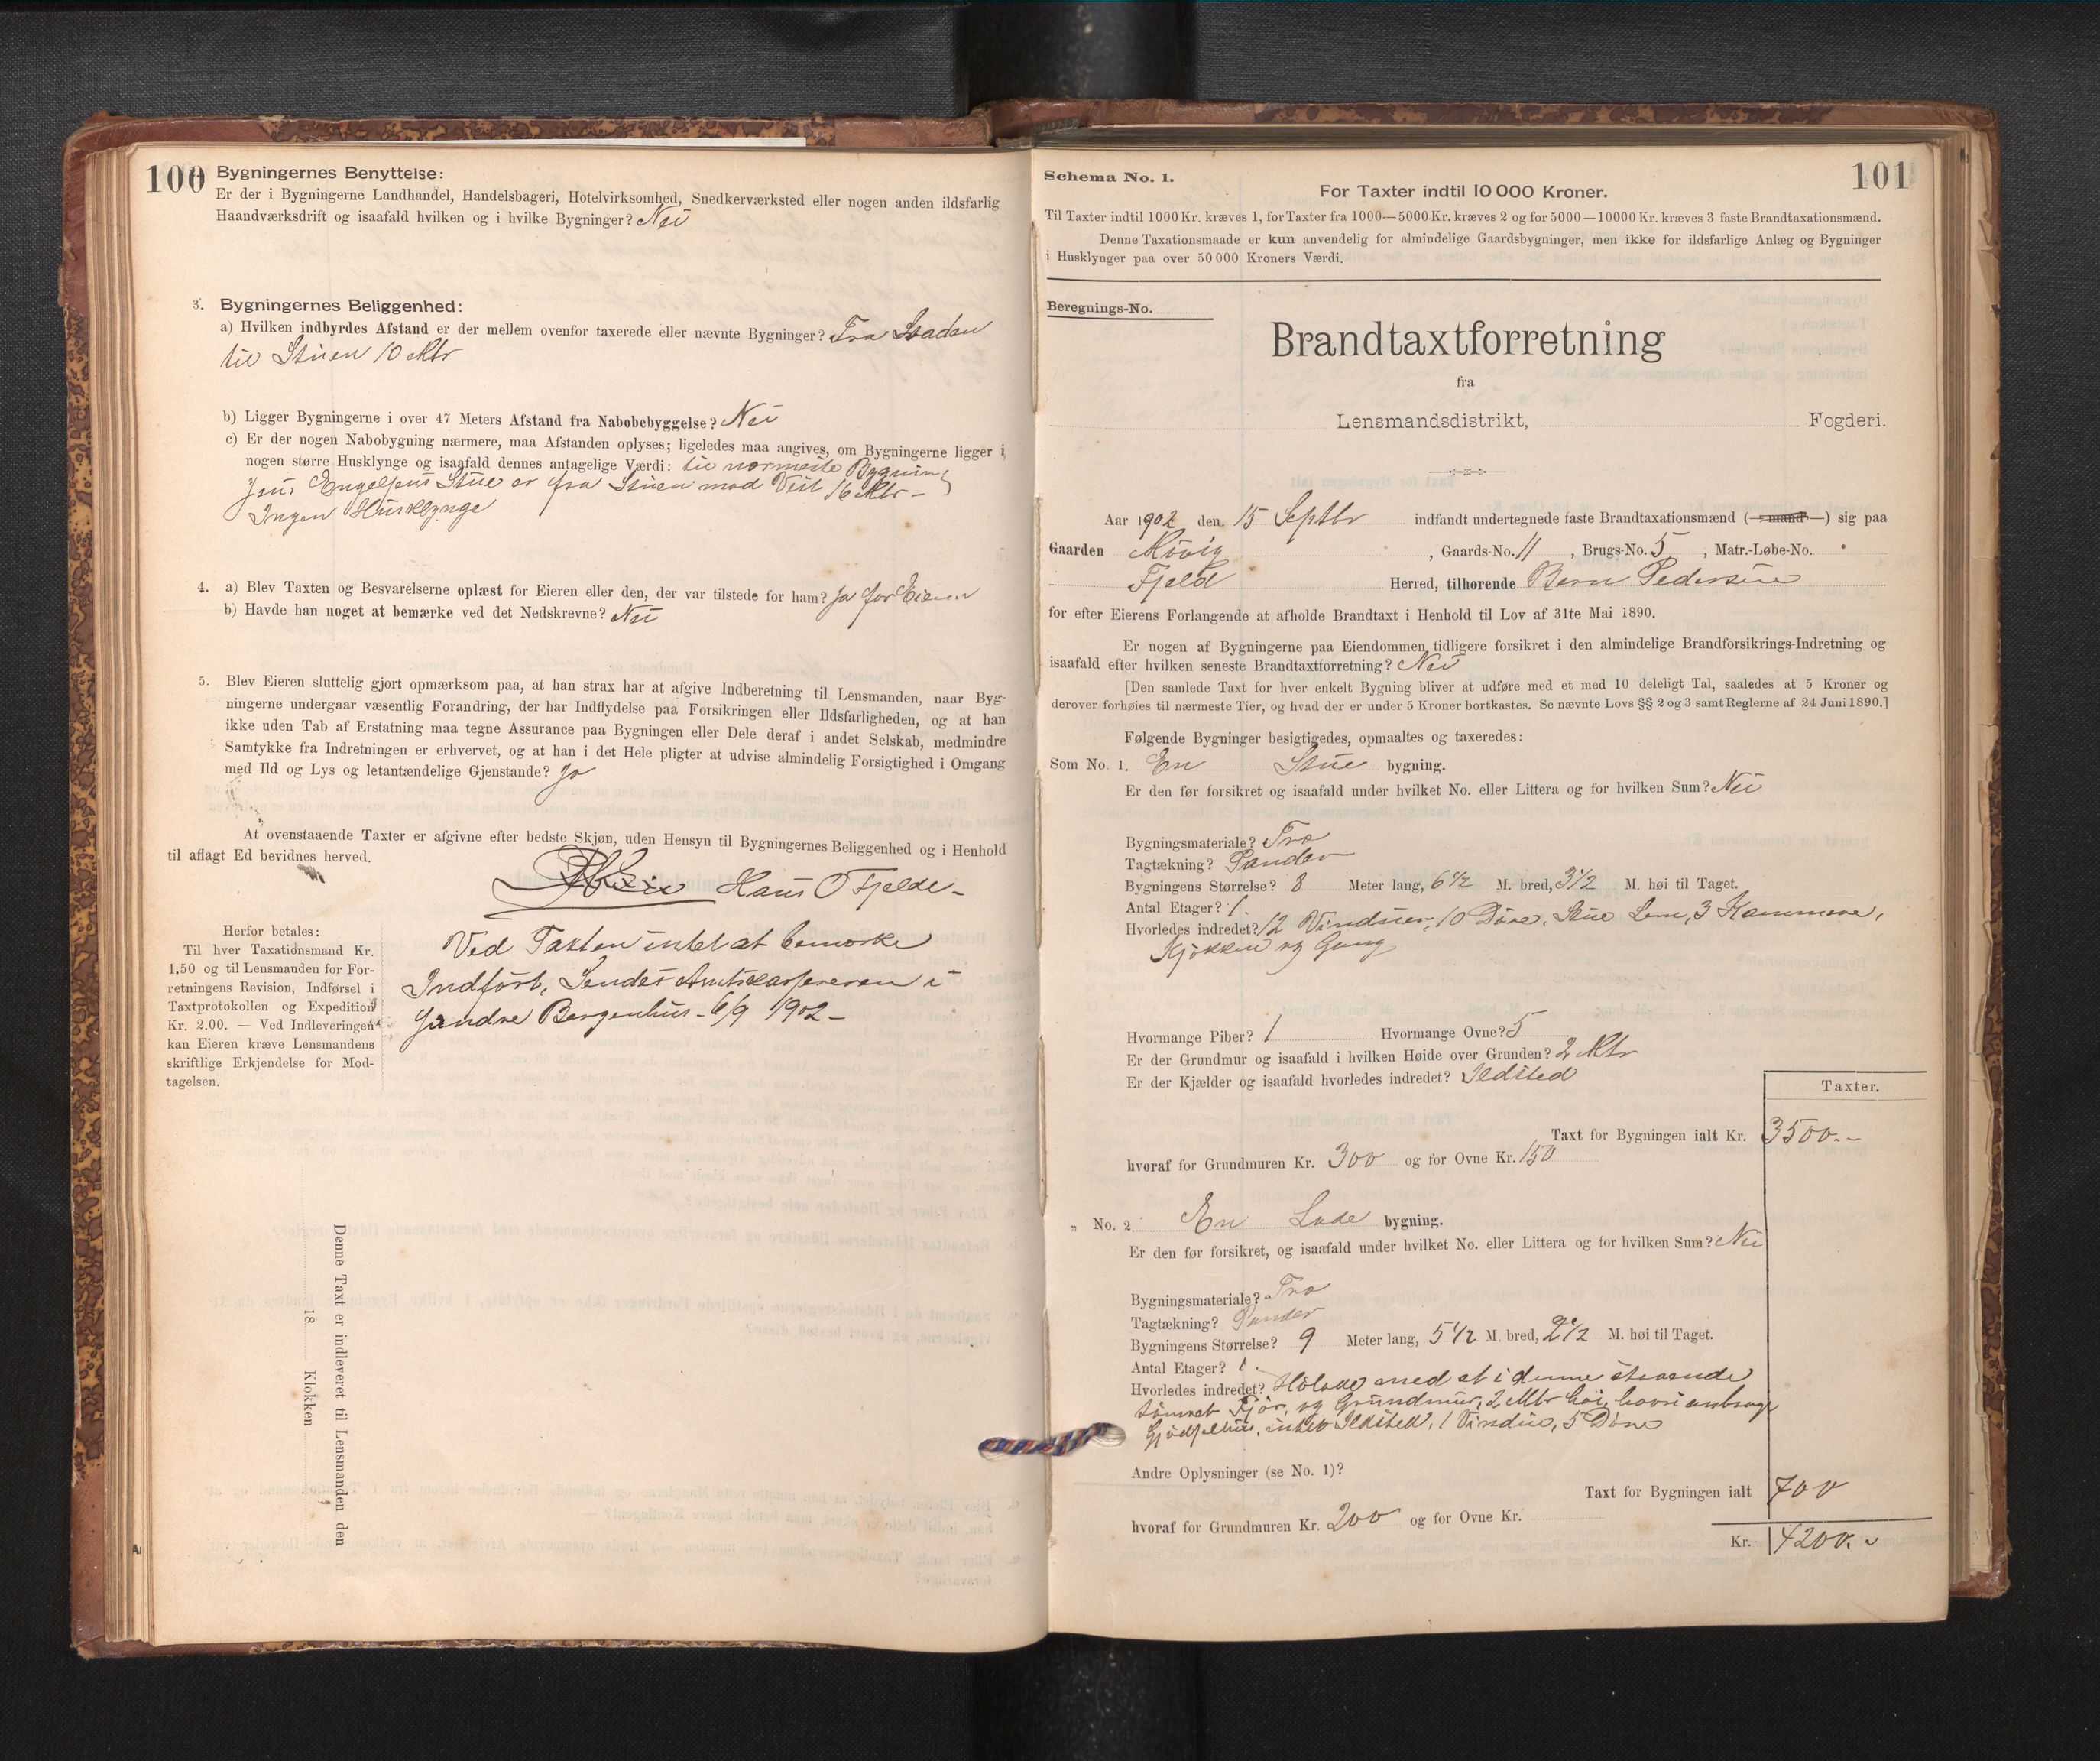 100
Bygningernes Benyttelse:
Er der i Bygningerne Landhandel, Handelsbageri, Hotelvirksomhed, Snedkerværksted eller nogen anden ildsfarlig
Haandværksdrift og isaafald hvilken og i hvilke Bygninger? Nei
3. Bygningernes Beliggenhed:
a) Hvilken indbyrdes Afstand er der mellem ovenfor taxerede eller nævnte Bygninger? Fra Laaden
til Stuen 10 Mtr
b) Ligger Bygningerne i over 47 Meters Afstand fra Nabobebyggelse? Nei
c) Er der nogen Nabobygning nærmere, maa Afstanden oplyses; ligeledes maa angives, om Bygningerne ligger i
nogen større Husklynge og isaafald dennes antagelige Værdi: til nærmeste Bygning
Jens Engelsens Stue er fra Stuen mod Vest 16 Mtr –
Ingen Husklynge
4. a) Blev Taxten og Besvarelserne oplæst for Eieren eller den, der var tilstede for ham? Ja for Eieren
b) Havde han noget at bemærke ved det Nedskrevne? Nei
5. Blev Eieren sluttelig gjort opmærksom paa, at han strax har at afgive Indberetning til Lensmanden, naar Byg-
ningerne undergaar væsentlig Forandring, der har Indflydelse paa Forsikringen eller Ildsfarligheden, og at han
ikke uden Tab af Erstatning maa tegne Assurance paa Bygningen eller Dele deraf i andet Selskab, medmindre
Samtykke fra Indretningen er erhvervet, og at han i det Hele pligter at udvise almindelig Forsigtighed i Omgang
med Ild og Lys og letantændelige Gjenstande? Ja
At ovenstaaende Taxter er afgivne efter bedste Skjøn, uden Hensyn til Bygningernes Beliggenhed og i Henhold
til aflagt Ed bevidnes herved.
Hans O Fjelde –
Herfor betales:
Til hver Taxationsmand Kr.
1.50 og til Lensmanden for For-
retningens Revision, Indførsel i
Taxtprotokollen og Expedition
Kr. 2.00. — Ved Indleveringen
kan Eieren kræve Lensmandens
skriftlige Erkjendelse for Mod-
tagelsen.
Ved Taxten intet at bemærke
Indført, Sendes Amtskasjereren i
Søndre Bergenhus – 6/9 1902 –
Denne Taxt er indleveret til Lensmanden den
18 Klokken
101
Schema No. 1.
For Taxter indtil 10 000 Kroner.
Til Taxter indtil 1000 Kr. kræves 1, for Taxter fra 1000—5000 Kr. kræves 2 og for 5000—10000 Kr. kræves 3 faste Brandtaxationsmænd.
Denne Taxationsmaade er kun anvendelig for almindelige Gaardsbygninger, men ikke for ildsfarlige Anlæg og Bygninger
i Husklynger paa over 50 000 Kroners Værdi.
Beregnings-No.
Brandtaxtforretning
fra
Lensmandsdistrikt, Fogderi.
Aar 1902 den 15 Septbr indfandt undertegnede faste Brandtaxationsmænd (—mand—) sig paa
Gaarden Møvig , Gaards-No. 11 , Brugs-No. 5 , Matr.-Løbe-No.
Fjeld Herred, tilhørende Bern Pedersen
for efter Eierens Forlangende at afholde Brandtaxt i Henhold til Lov af 31te Mai 1890.
Er nogen af Bygningerne paa Eiendommen tidligere forsikret i den almindelige Brandforsikrings-Indretning og
isaafald efter hvilken seneste Brandtaxtforretning? Nei
[Den samlede Taxt for hver enkelt Bygning bliver at udføre med et med 10 deleligt Tal, saaledes at 5 Kroner og
derover forhøies til nærmeste Tier, og hvad der er under 5 Kroner bortkastes. Se nævnte Lovs §§ 2 og 3 samt Reglerne af 24 Juni 1890.]
Følgende Bygninger besigtigedes, opmaaltes og taxeredes:
Som No. 1. En Stue bygning.
Er den før forsikret og isaafald under hvilket No. eller Littera og for hvilken Sum? Nei
Bygningsmateriale? Træ
Tagtækning? Pander
Bygningens Størrelse? 8 Meter lang, 6 1/2 M. bred, 3 1/2 M. høi til Taget.
Antal Etager? 1.
Hvorledes indredet? 12 Vinduer, 10 Døre, Stue Lem, 3 Kammere,
Kjøkken og Gang
Hvormange Piber? 1 Hvormange Ovne? 5
Er der Grundmur og isaafald i hvilken Høide over Grunden? 2 Mtr
Er der Kjælder og isaafald hvorledes indredet? Ildsted
Taxter.
Taxt for Bygningen ialt Kr. 3500.–
hvoraf for Grundmuren Kr. 300 og for Ovne Kr. 150
„ No. 2 En Lade bygning.
Er den før forsikret, og isaafald under hvilket No. eller Littera og for hvilken Sum? Nei
Bygningsmateriale? Træ
Tagtækning? Pander
Bygningens Størrelse? 9 Meter lang, 5 1/2 M. bred, 2 1/2 M. høi til Taget.
Antal Etager? 1.
Hvorledes indredet? Hølade med et i denne staaende
tømret Fjøs, og Grundmur, 2 Mtr høi, hvori anbragt
Gjødselhus, intet Ildsted, 1 Vindue, 5 Døre
Andre Oplysninger (se No. 1)?
Taxt for Bygningen ialt 700
hvoraf for Grundmuren Kr. 200 og for Ovne Kr.
Kr. 4200.